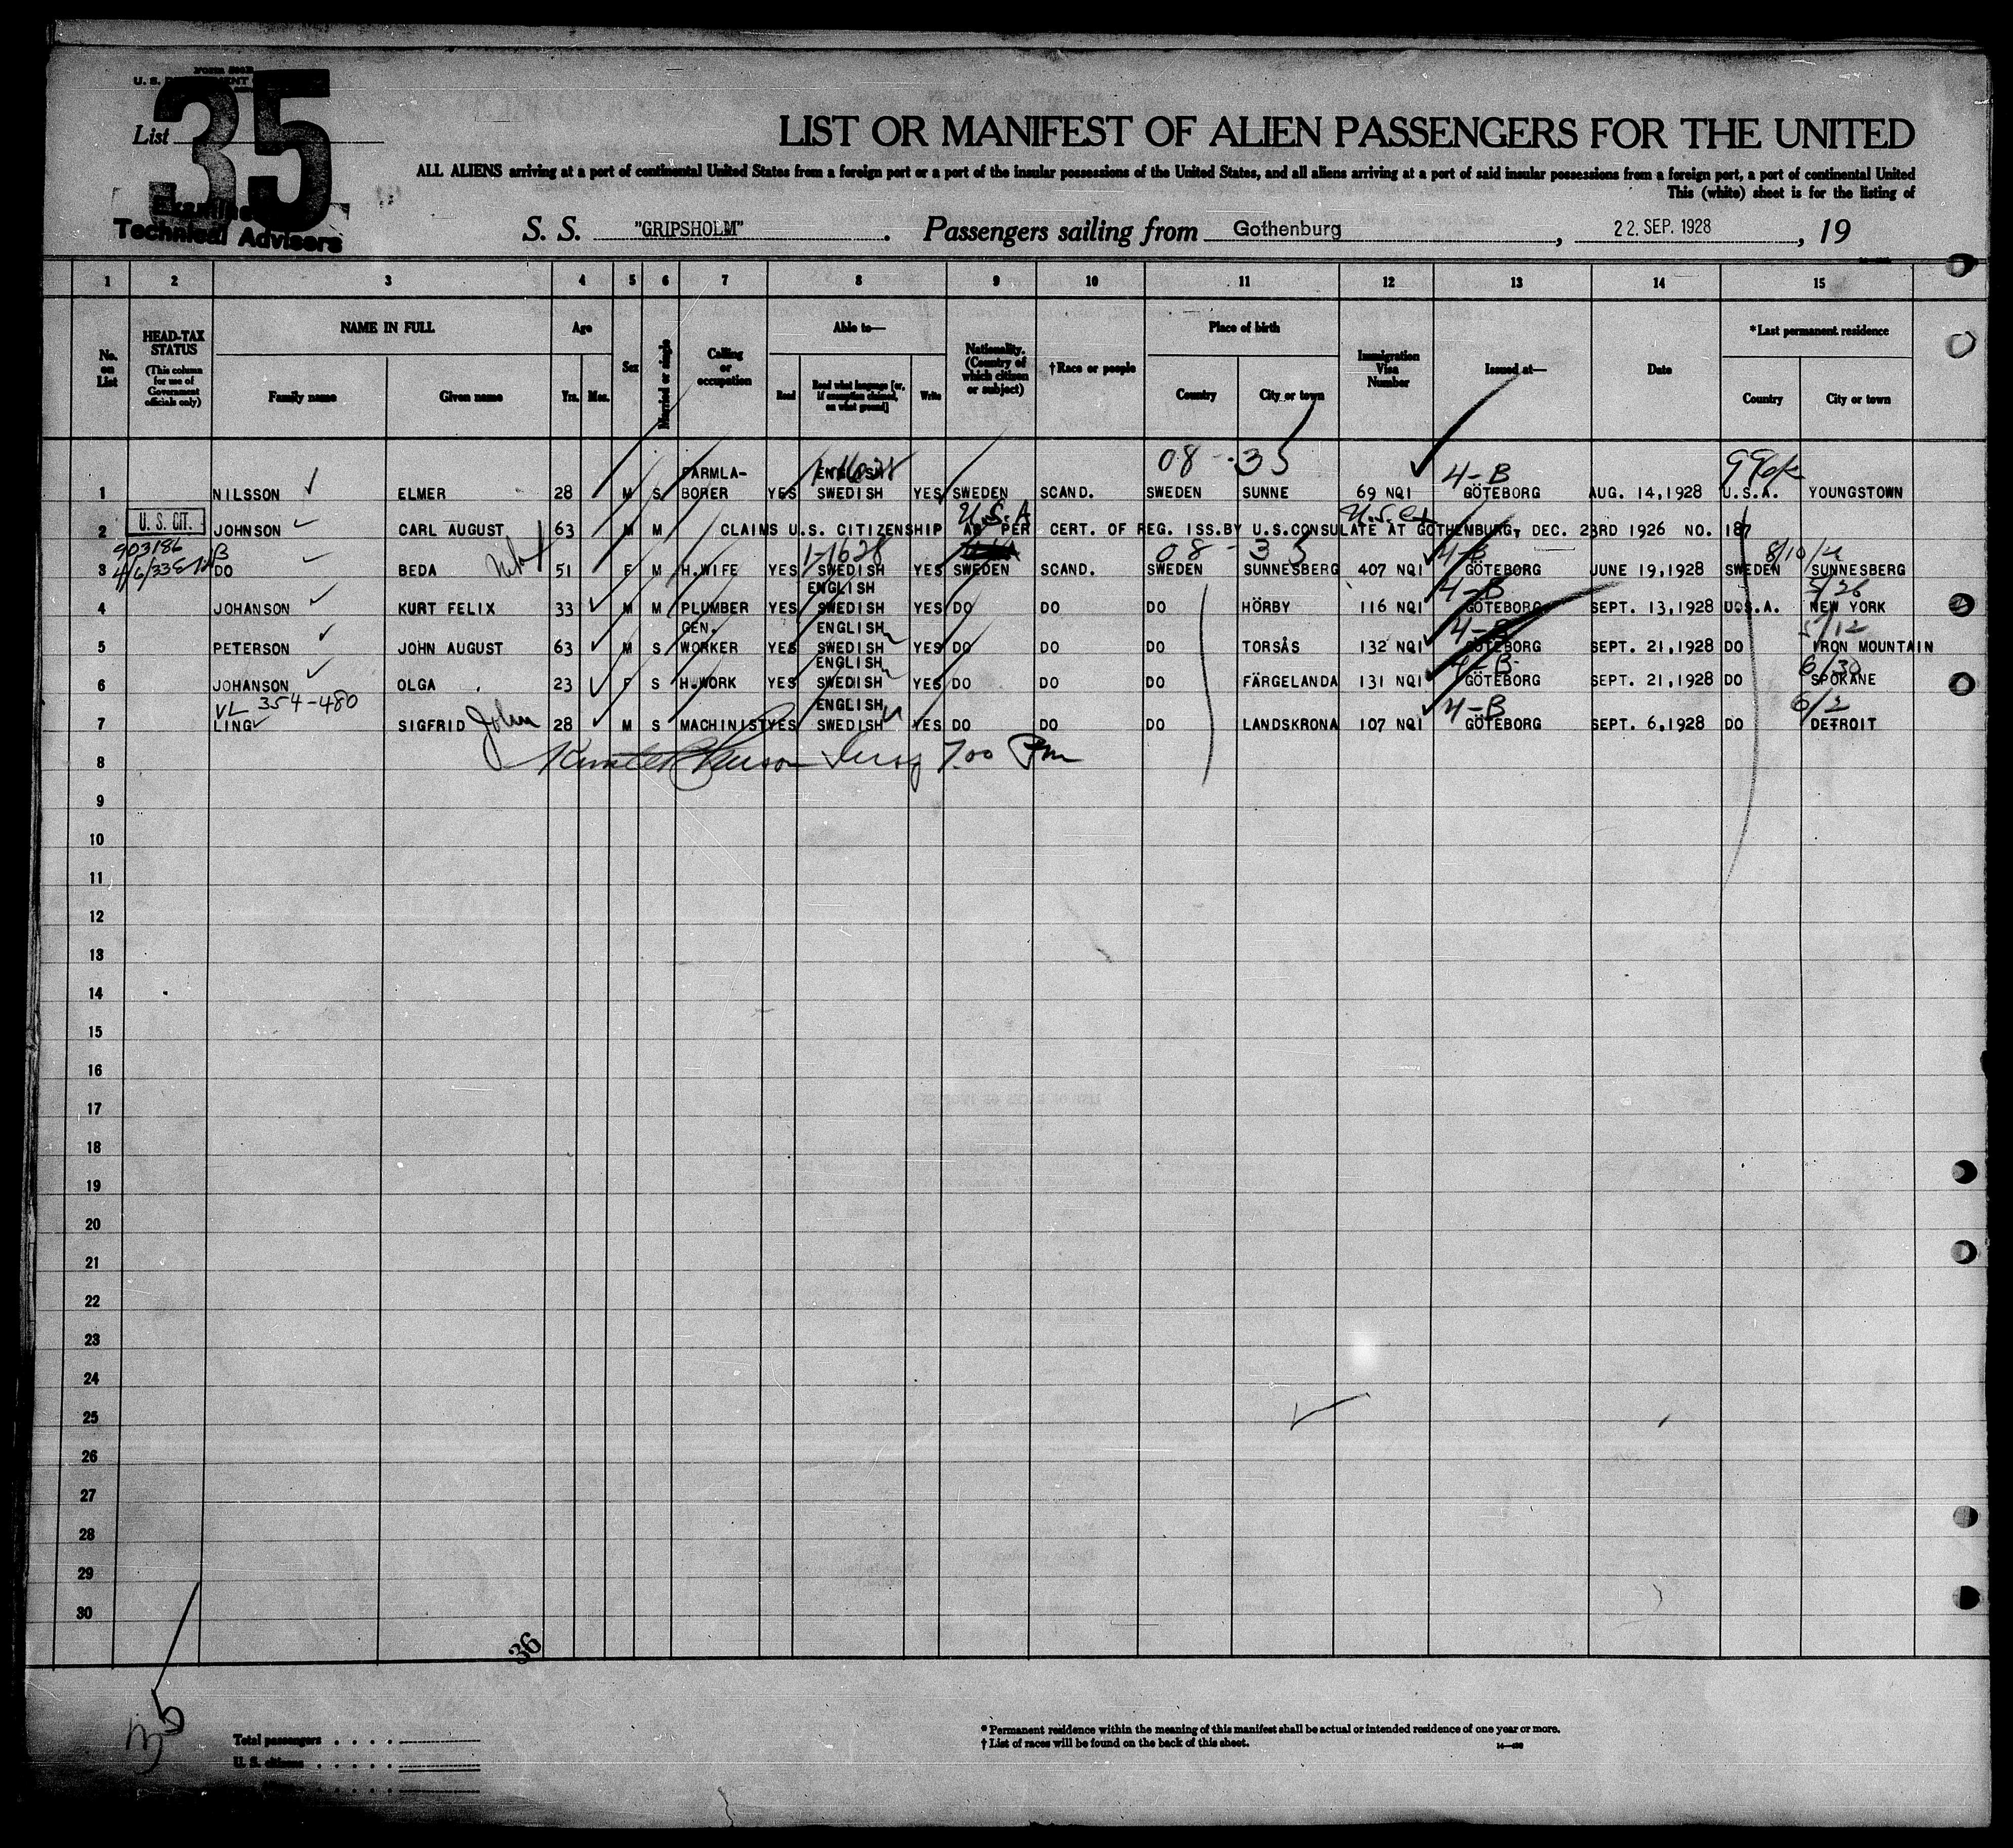 Form 500B
U. S. DEPARTMENT
List
35
Examined
Technical Advisers
LIST OR MANIFEST OF ALIEN PASSENGERS FOR THE UNITED
ALL ALIENS arriving at a port of continental United States from a foreign port or a port of the insular possessions of the United States, and all aliens arriving at a port of said insular possessions from a foreign port, a port of continental United
This (white) sheet is for the listing of
S. S. "GRIPSHOLM". Passengers sailing from Gothenburg, 22. SEP. 1928, 19
1 2 3 4 5 6 7 8 9 10 11 12 13 14 15
No. on List
HEAD-TAX STATUS (This column for use of Government officials only)
NAME IN FULL Family name Given name
Age Yrs. Mos.
Sex
Married or single
Calling or occupation
Able to— Read Read what language [or, if exemption claimed, on what ground] Write
Nationality. (Country of which citizen or subject)
†Race or people
Place of birth Country City or town
Immigration Visa Number
Issued at—
Date
*Last permanent residence Country City or town
08 - 35 4-B
FARMLA- ENGLISH
1 NILSSON ELMER 28 M S BORER YES SWEDISH YES SWEDEN SCAND. SWEDEN SUNNE 69 NQI GÖTEBORG AUG. 14,1928 U.S.A. YOUNGSTOWN
U. S. CIT. U.S.A U.S.Ct
2 JOHNSON CARL AUGUST 63 M M CLAIMS U.S. CITIZENSHIP AS PER CERT. OF REG. ISS.BY U.S.CONSULATE AT GOTHENBURG, DEC. 23RD 1926 NO. 187
903186 B 1-1628 08 - 33 4-B 8/10/
4/6/33
3 DO BEDA 51 F M H.WIFE YES SWEDISH YES SWEDEN SCAND. SWEDEN SUNNESBERG 407 NQI GÖTEBORG JUNE 19,1928 SWEDEN SUNNESBERG
ENGLISH 4-B 5/26
4 JOHANSON KURT FELIX 33 M M PLUMBER YES SWEDISH YES DO DO DO HÖRBY 116 NQI GÖTEBORG SEPT. 13,1928 U.S.A. NEW YORK
GEN. ENGLISH 4-B 5/12
5 PETERSON JOHN AUGUST 63 M S WORKER YES SWEDISH YES DO DO DO TORSÅS 132 NQI GÖTEBORG SEPT. 21,1928 DO IRON MOUNTAIN
ENGLISH 4-B 6/30
6 JOHANSON OLGA 23 F S H.WORK YES SWEDISH YES DO DO DO FÄRGELANDA 131 NQI GÖTEBORG SEPT. 21,1928 DO SPOKANE
VL 354-480 ENGLISH 4-B 6/2
7 LING SIGFRID John 28 M S MACHINIST YES SWEDISH YES DO DO DO LANDSKRONA 107 NQI GÖTEBORG SEPT. 6,1928 DO DETROIT
7.00 Pm
8
9
10
11
12
13
14
15
16
17
18
19
20
21
22
23
24
25
26
27
28
29
30
36
Total passengers
U. S. citizens
* Permanent residence within the meaning of this manifest shall be actual or intended residence of one year or more.
† List of races will be found on the back of this sheet.